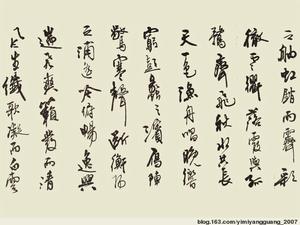 虹銷雨霽彩
徹雲衢落霞與孤
鶩齊飛秋水共長
天一色漁舟唱晚響
窮彭蠡之濱雁陣
驚寒聲斷衡陽
之浦遙吟俯暢逸興
遄飛爽籟發而清
風生纖歌凝而白雲
blog.163.com/yimiyangguang_2007